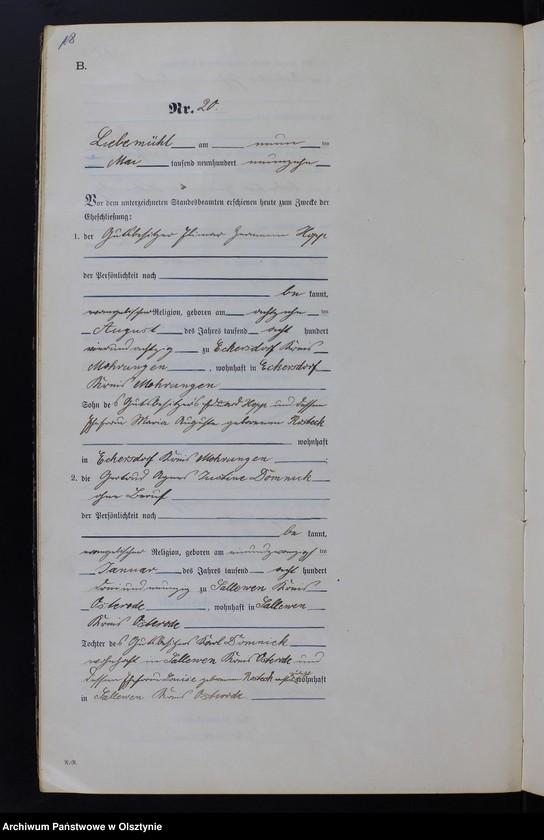 118
B.
Nr. 20.
Liebemühl am neun ten
Mai tausend neunhundert neunzehn
Vor dem unterzeichneten Standesbeamten erschienen heute zum Zwecke der
Eheschließung:
1. der Gutsbesitzer Hermann Hopp
der Persönlichkeit nach
be kannt,
evangelischer Religion, geboren am achtzehn ten
August des Jahres tausend acht hundert
vierundachtzig zu Eckersdorf Kreis
Mohrungen, wohnhaft in Eckersdorf
Kreis Mohrungen
Sohn des Gutsbesitzers Eduard Hopp und dessen
Ehefrau Maria Auguste geborenen Rosteck
wohnhaft
in Eckersdorf Kreis Mohrungen;
2. die Gertrud Agnes Justine Domnick
ohne Beruf
der Persönlichkeit nach
be kannt,
evangelischer Religion, geboren am neunundzwanzigsten
Januar des Jahres tausend acht hundert
dreiundneunzig zu Sallewen Kreis
Osterode, wohnhaft in Sallewen
Kreis Osterode
Tochter des Gutsbesitzers Karl Domnick
wohnhaft in Sallewen Kreis Osterode und
dessen Ehefrau Louise geborenen Rosteck wohnhaft
in Sallewen Kreis Osterode
Archiwum Państwowe w Olsztynie